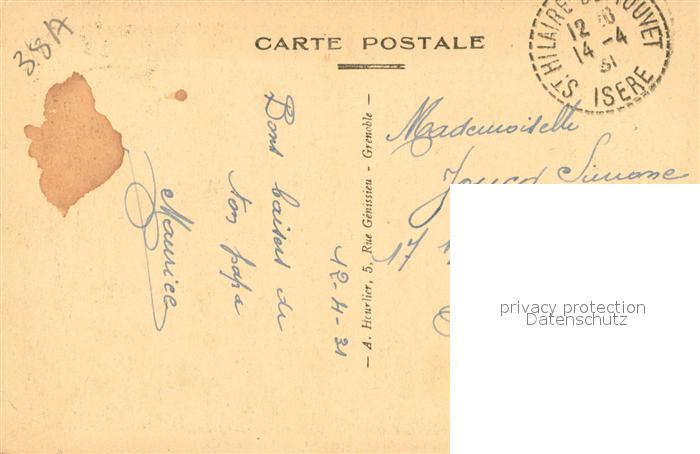 38A
CARTE POSTALE
ST HILAIRE DU TOUVET
12
14 -4
31
ISERE
12-4-31
Bons baisers de
ton papa
Maurice
— A. Heurlier, 5, Rue Génissieu - Grenoble —
Mademoiselle
Simone
17
privacy protection
Datenschutz